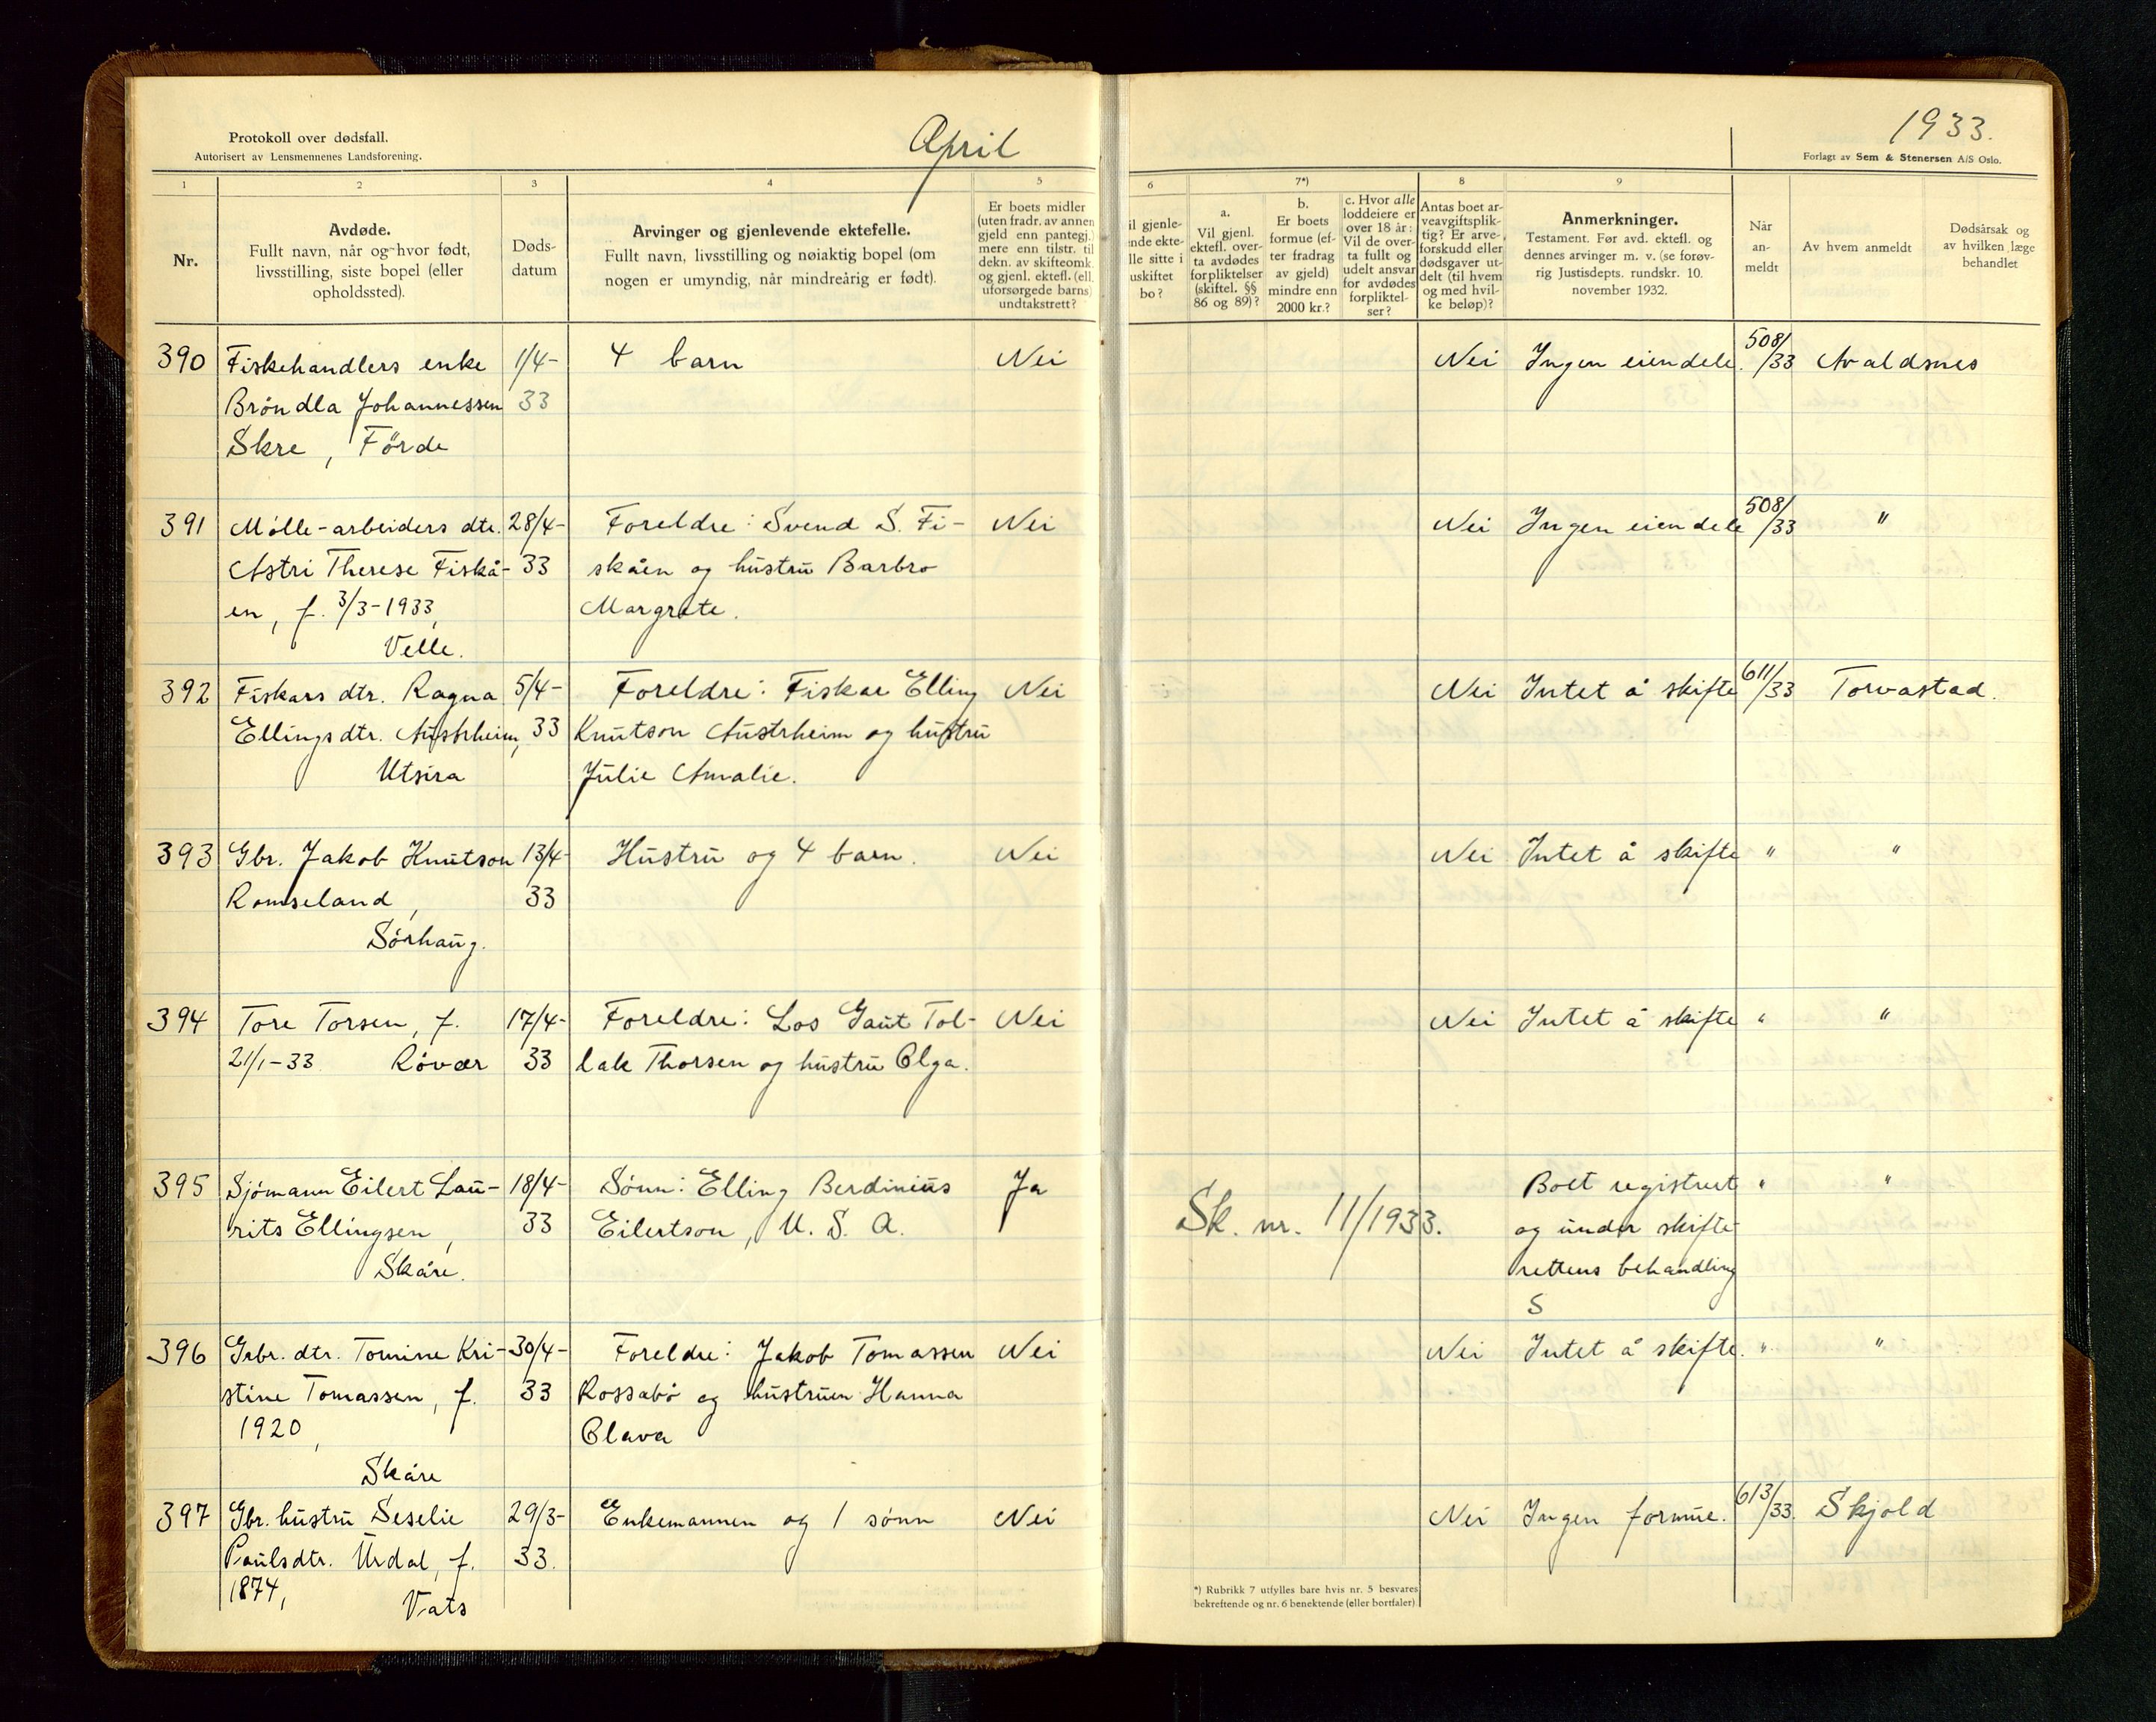 Protokoll over dødsfall.
Autorisert av Lensmennenes Landsforening.
April
1933.
Forlagt av Sem & Stenersen A/S Oslo.
1 2 3 4 5 6 7*) 8 9
Nr.
Avdøde.
Fullt navn, når og hvor født,
livsstilling, siste bopel (eller
opholdssted).
Døds-
datum
Arvinger og gjenlevende ektefelle.
Fullt navn, livsstilling og nøiaktig bopel (om
nogen er umyndig, når mindreårig er født).
Er boets midler
(uten fradr. av annen
gjeld enn pantegj.)
mere enn tilstr. til
dekn. av skifteomk.
og gjenl. ektefl. (ell.
uforsørgede barns)
undtakstrett?
il gjenle-
nde ekte-
lle sitte i
uskiftet
bo?
a.
Vil gjenl.
ektefl. over-
ta avdødes
forpliktelser
(skiftel. §§
86 og 89)?
b.
Er boets
formue (ef-
ter fradrag
av gjeld)
mindre enn
2000 kr.?
c. Hvor alle
loddeiere er
over 18 år:
Vil de over-
ta fullt og
udelt ansvar
for avdødes
forpliktel-
ser?
Antas boet ar-
veavgiftsplik-
tig? Er arve-
forskudd eller
dødsgaver ut-
delt (til hvem
og med hvil-
ke beløp)?
Anmerkninger.
Testament. Før avd. ektefl. og
dennes arvinger m. v. (se forøv-
rig Justisdepts. rundskr. 10.
november 1932.
Når
an-
meldt
Av hvem anmeldt
Dødsårsak og
av hvilken læge
behandlet
390 Fiskehandlers enke 1/4- 4 barn Nei Nei Ingen eiendele. 508/33 Avaldsnes
Bröndla Johannessen 33
Skre, Förde
391 Mölle-arbeiders dtr. 28/4- Foreldre: Svend S. Fi- Nei Nei Ingen eiendele 508/33 "
Astri Therese Fiskå- 33 skåen og hustru Barbro
en, f. 3/3-1933, Margrete.
Velle.
392 Fiskars dtr. Ragna 5/4- Foreldre: Fiskar Elling Nei Nei Intet å skifte 611/33 Torvastad.
Ellingsdtr. Austrheim, 33 Knutson Austrheim og hustru
Utsira Julie Amalie.
393 Gbr. Jakob Knutson 13/4- Hustru og 4 barn. Nei Nei Intet å skifte " "
Romseland, 33
Sörhaug.
394 Tore Torsen, f. 17/4- Foreldre: Los Gaut Tol- Nei Nei Intet å skifte " "
21/1-33 Rövær 33 lak Thorsen og hustru Olga.
395 Sjömann Eilert Lau- 18/4- Sönn: Elling Berdinius Ja Boet registrert " "
rits Ellingsen, 33 Eilertson, U. S. A. Sk. nr. 11/1933. og under skifte-
Skåre. rettens behandling
S
396 Grbr. dtr. Tomine Kri- 30/4- Foreldre: Jakob Tomassen Nei Nei Intet å skifte. " "
stine Tomassen, f. 33 Rossabö og hustruen Hanna
1920, Olava
Skåre
397 Gbr. hustru Seselie 29/3- Enkemannen og 1 sönn Nei Nei Ingen formue. 613/33. Skjold
Paulsdtr. Urdal, f. 33.
1874, Vats
*) Rubrikk 7 utfylles bare hvis nr. 5 besvares
bekreftende og nr. 6 benektende (eller bortfaler)